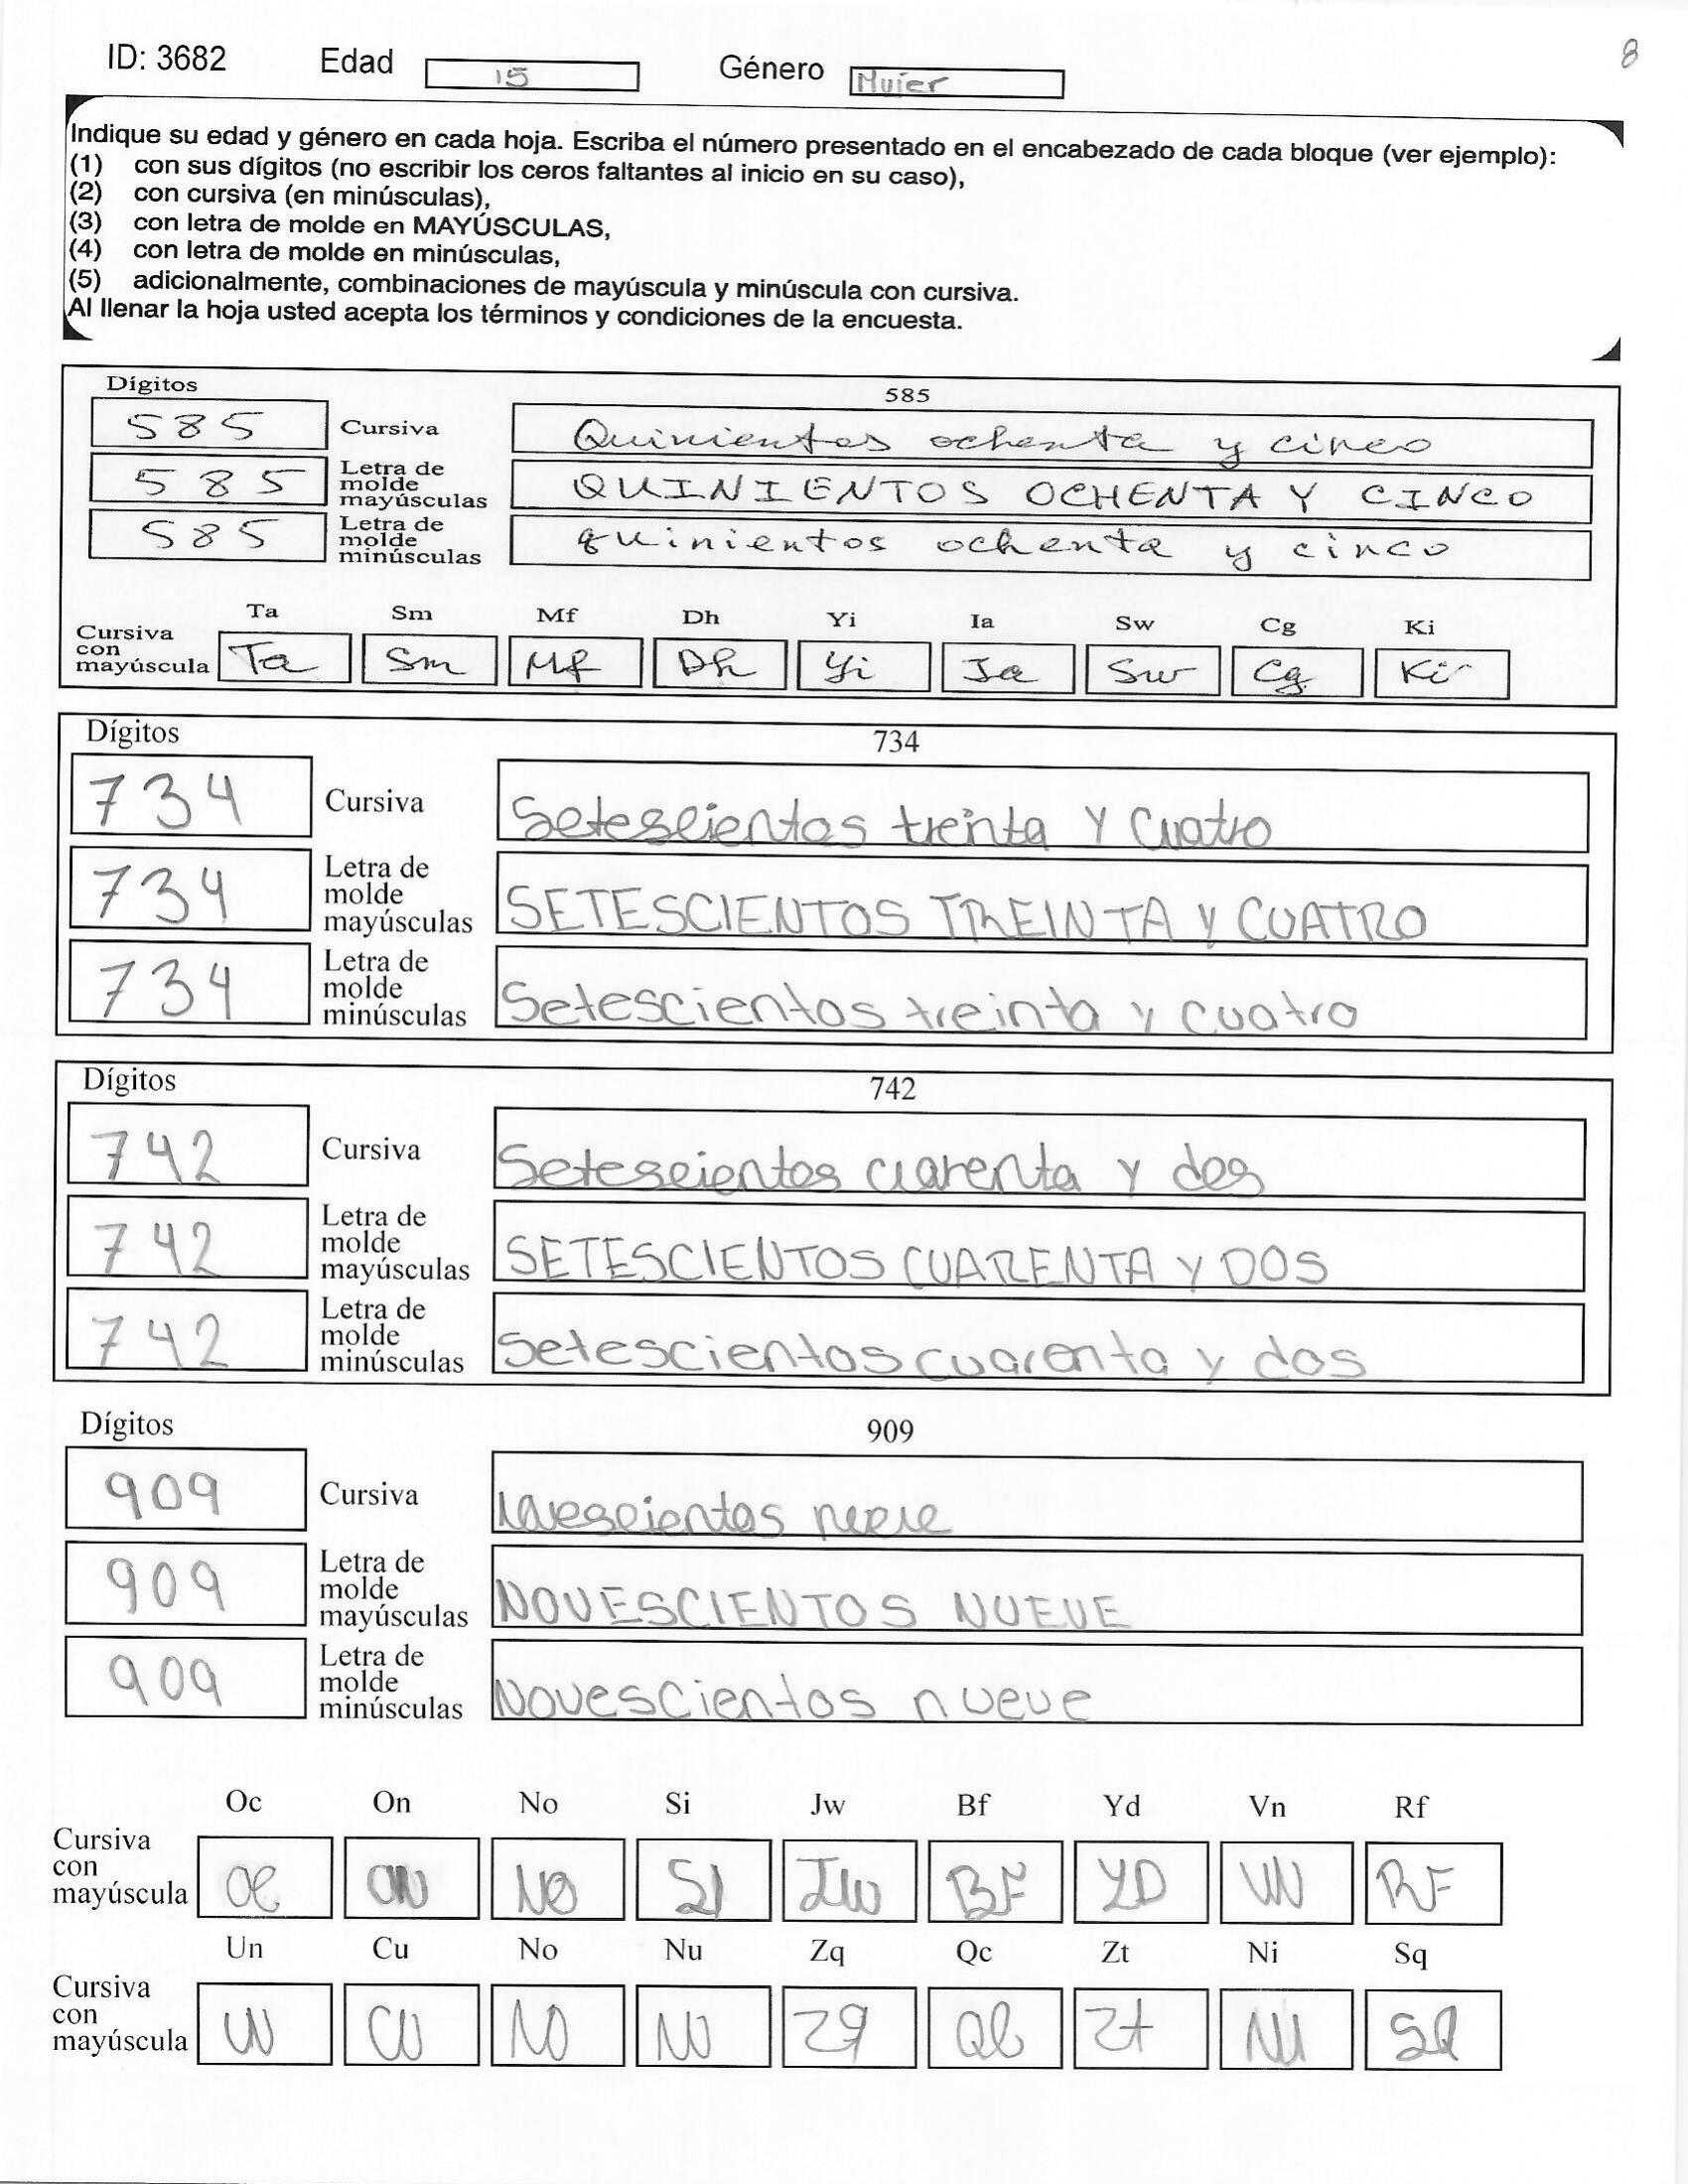 ID: 3682 Edad 15 Género Mujer 8
Indique su edad y género en cada hoja. Escriba el número presentado en el encabezado de cada bloque (ver ejemplo):
(1) con sus dígitos (no escribir los ceros faltantes al inicio en su caso),
(2) con cursiva (en minúsculas),
(3) con letra de molde en MAYÚSCULAS,
(4) con letra de molde en minúsculas,
(5) adicionalmente, combinaciones de mayúscula y minúscula con cursiva.
Al llenar la hoja usted acepta los términos y condiciones de la encuesta.
Dígitos 585
585 Cursiva Quinientos ochenta y cinco
585 Letra de molde mayúsculas QUINIENTOS OCHENTA Y CINCO
585 Letra de molde minúsculas quinientos ochenta y cinco
Ta Sm Mf Dh Yi Ia Sw Cg Ki
Cursiva con mayúscula Ta Sm Mf Dh Yi Ia Sw Cg Ki
Dígitos 734
734 Cursiva Setescientos treinta y Cuatro
734 Letra de molde mayúsculas SETESCIENTOS TREINTA Y CUATRO
734 Letra de molde minúsculas Setescientos treinta y cuatro
Dígitos 742
742 Cursiva Setescientos cuarenta y dos
742 Letra de molde mayúsculas SETESCIENTOS CUARENTA Y DOS
742 Letra de molde minúsculas Setescientos cuarenta y dos
Dígitos 909
909 Cursiva Novescientos nueve
909 Letra de molde mayúsculas NOVESCIENTOS NUEVE
909 Letra de molde minúsculas Novescientos nueve
Oc On No Si Jw Bf Yd Vn Rf
Cursiva con mayúscula Oc ON NO SI Jw BF YD VN RF
Un Cu No Nu Zq Qc Zt Ni Sq
Cursiva con mayúscula UN CU NO NU Zq Qc Zt NI SQ